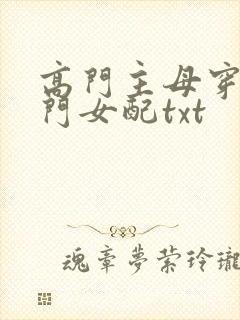 高門主母穿
門女配txt
魂章夢縈玲瓏